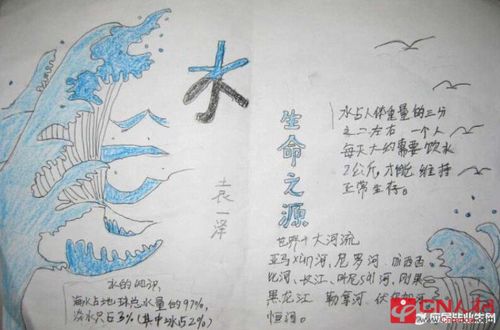 水
生命之源
袁一泽
水占人体重量的三分
之二左右，一个人
每天大约需要饮水
2公斤，才能维持
正常生存。
世界十大河流
亚马xùn河、尼罗河、
比河、长江、
黑龙江 勒拿河、
恒河。
水的知识
海水占地球总水量的97%，
淡水只占3%（其中冰占2%）